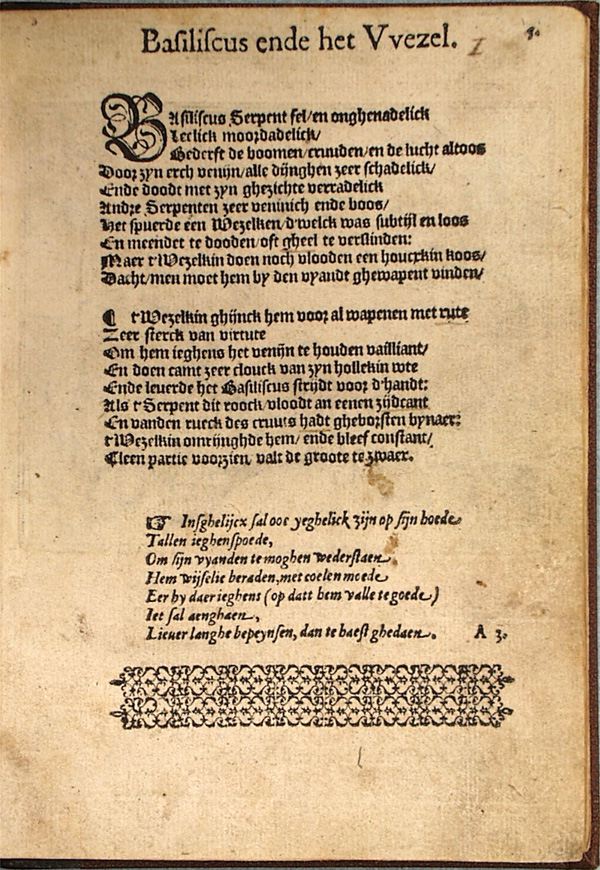 Basiliscus ende het Vvezel.
1
Basiliscus Serpent fel/en onghenadelick
Leelick moordadelick/
Bederft de boomen/cruuden/en de lucht altoos
Door zyn erch venijn/alle dijnghen zeer schadelick/
Ende doodt met zyn ghezichte verradelick
Andre Serpenten zeer veninich ende boos/
Het spuerde een Wezelken/d'welck was subtijl en loos
En meendet te dooden/oft gheel te verslinden:
Maer t'Wezelkin doen noch vlooden een houexkin koos/
Dacht/men moet hem by den vyandt ghewapent vinden/
¶ t'Wezelkin ghijnck hem voor al wapenen met rute
Zeer sterck van virtute
Om hem ieghens het venijn te houden vailliant/
En doen camt zeer clouck van zyn hollekin wte
Ende leuerde het Basiliscus strijdt voor d'handt:
Als t'Serpent dit roock/vloodt an eenen zijdcant
En vanden rueck des cruuts hadt gheborsten bynaer:
t'Wezelkin omrijnghde hem/ende bleef constant/
Cleen partie voorzien/valt de groote te zwaer.
☞ Insghelijcx sal ooc yeghelick zijn op sijn hoede
Tallen ieghenspoede,
Om sijn vyanden te moghen wederstaen.
Hem wijselic beraden, met coelen moede
Eer hy daer ieghens (op datt hem valle te goede)
Iet sal aenghaen,
Lieuer langhe bepeynsen, dan te haest ghedaen. A 3.